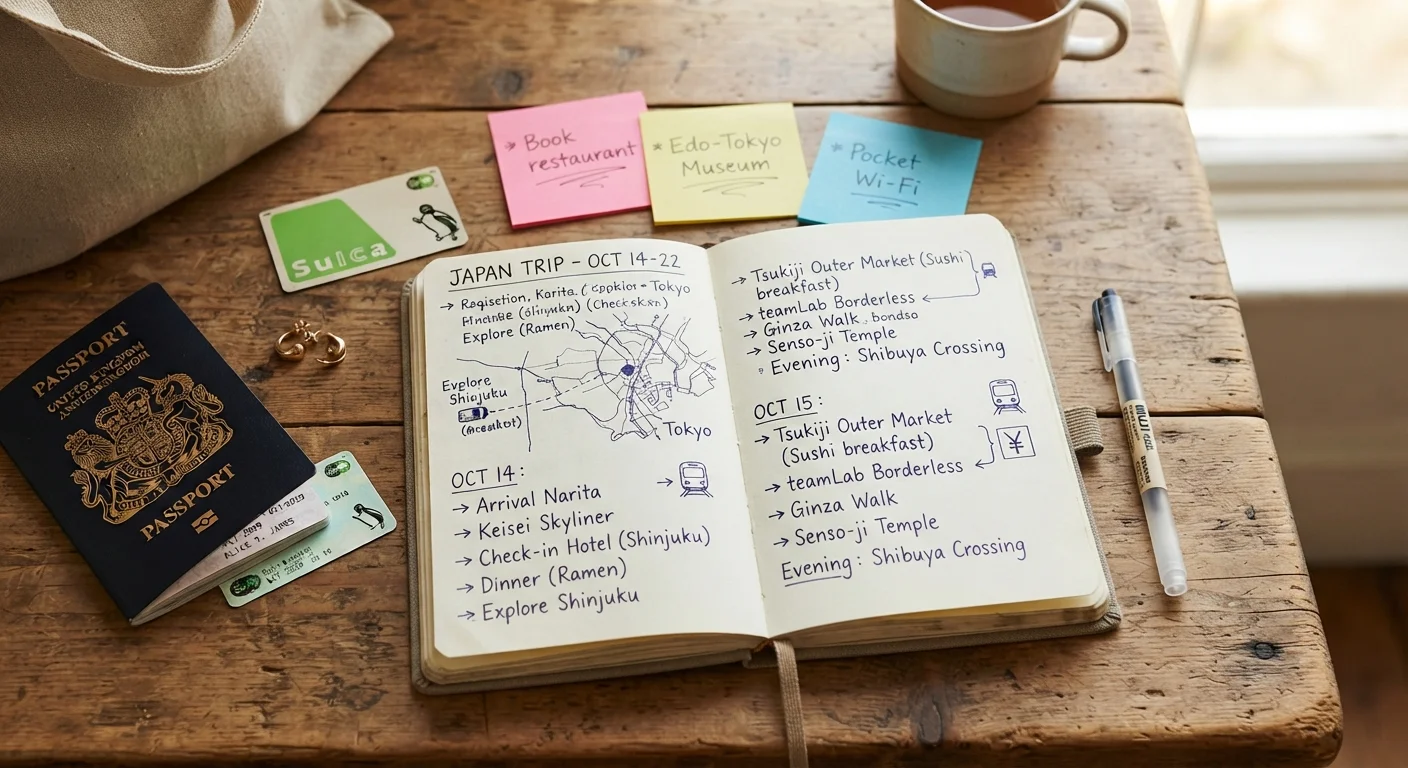 * Book
restaurant
* Edo-Tokyo
Museum
* Pocket
Wi-Fi
Suica
PASSPORT
PASSPORT
ALICE
JAPAN TRIP - OCT 14-22
→ Tokyo
Explore (Ramen)
Explore
Tokyo
OCT 14:
→ Arrival Narita
→ Keisei Skyliner
→ Check-in Hotel (Shinjuku)
→ Dinner (Ramen)
→ Explore Shinjuku
→ Tsukiji Outer Market (Sushi
breakfast)
→ teamLab Borderless
→ Ginza Walk
→ Senso-ji Temple
Evening: Shibuya Crossing
OCT 15:
→ Tsukiji Outer Market
(Sushi breakfast)
¥
→ teamLab Borderless
→ Ginza Walk
→ Senso-ji Temple
Evening: Shibuya Crossing
MUJI